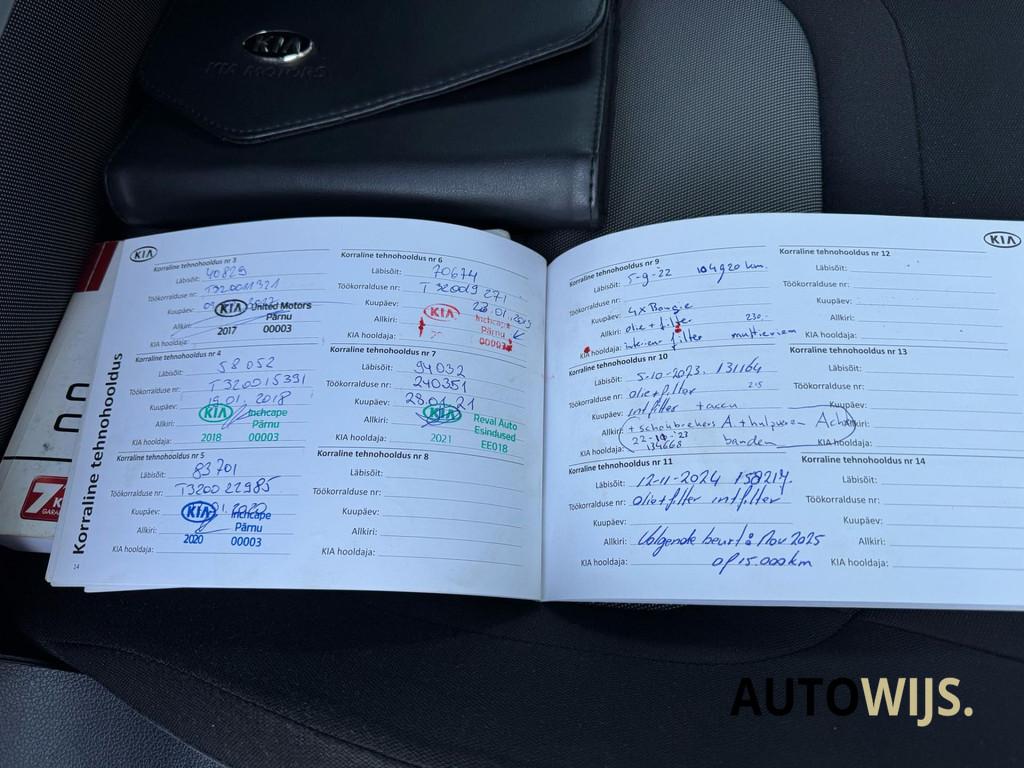 KIA
KIA MOTORS
KIA
Korraline tehnohooldus
Korraline tehnohooldus nr 3
Läbisõit: 40829
Töökorralduse nr: T320011321
Kuupäev:
Allkiri: KIA United Motors
Pärnu
KIA hooldaja: 2017 00003
Korraline tehnohooldus nr 4
Läbisõit: 58052
Töökorralduse nr: T320015391
Kuupäev: 19.01.2018
Allkiri: KIA Inchcape
Pärnu
KIA hooldaja: 2018 00003
Korraline tehnohooldus nr 5
Läbisõit: 83701
Töökorralduse nr: T320022985
Kuupäev: KIA Inchcape
Allkiri: Pärnu
KIA hooldaja: 2020 00003
14
Korraline tehnohooldus nr 6
Läbisõit: 70674
Töökorralduse nr: T320019271
Kuupäev: 28.01.2019
Allkiri: KIA Inchcape
Pärnu
KIA hooldaja: 00003
Korraline tehnohooldus nr 7
Läbisõit: 94032
Töökorralduse nr: 240351
Kuupäev: 28.01.21
Allkiri: KIA Reval Auto
Esindused
KIA hooldaja: 2021 EE018
Korraline tehnohooldus nr 8
Läbisõit:
Töökorralduse nr:
Kuupäev:
Allkiri:
KIA hooldaja:
Korraline tehnohooldus nr 9
Läbisõit: 5-9-22 104920 km.
Töökorralduse nr:
Kuupäev: 4x Bougie
Allkiri: olie + filter 230.-
KIA hooldaja: interieur filter multiriem
Korraline tehnohooldus nr 10
Läbisõit: 5-10-2023. 131164
Töökorralduse nr: olie+filter 215
Kuupäev: intfilter + accu
Allkiri: + schokbrekers A.
KIA hooldaja: 22-10-'23 banden
134668
Korraline tehnohooldus nr 11
Läbisõit: 12-11-2024 158217.
Töökorralduse nr: olie+filter intfilter
Kuupäev:
Allkiri: Volgende beurt: Nov 2025
KIA hooldaja: of 15.000km
KIA
Korraline tehnohooldus nr 12
Läbisõit:
Töökorralduse nr:
Kuupäev:
Allkiri:
KIA hooldaja:
Korraline tehnohooldus nr 13
Läbisõit:
Töökorralduse nr:
Kuupäev:
Allkiri:
KIA hooldaja:
Korraline tehnohooldus nr 14
Läbisõit:
Töökorralduse nr:
Kuupäev:
Allkiri:
KIA hooldaja:
AUTOWIJS.